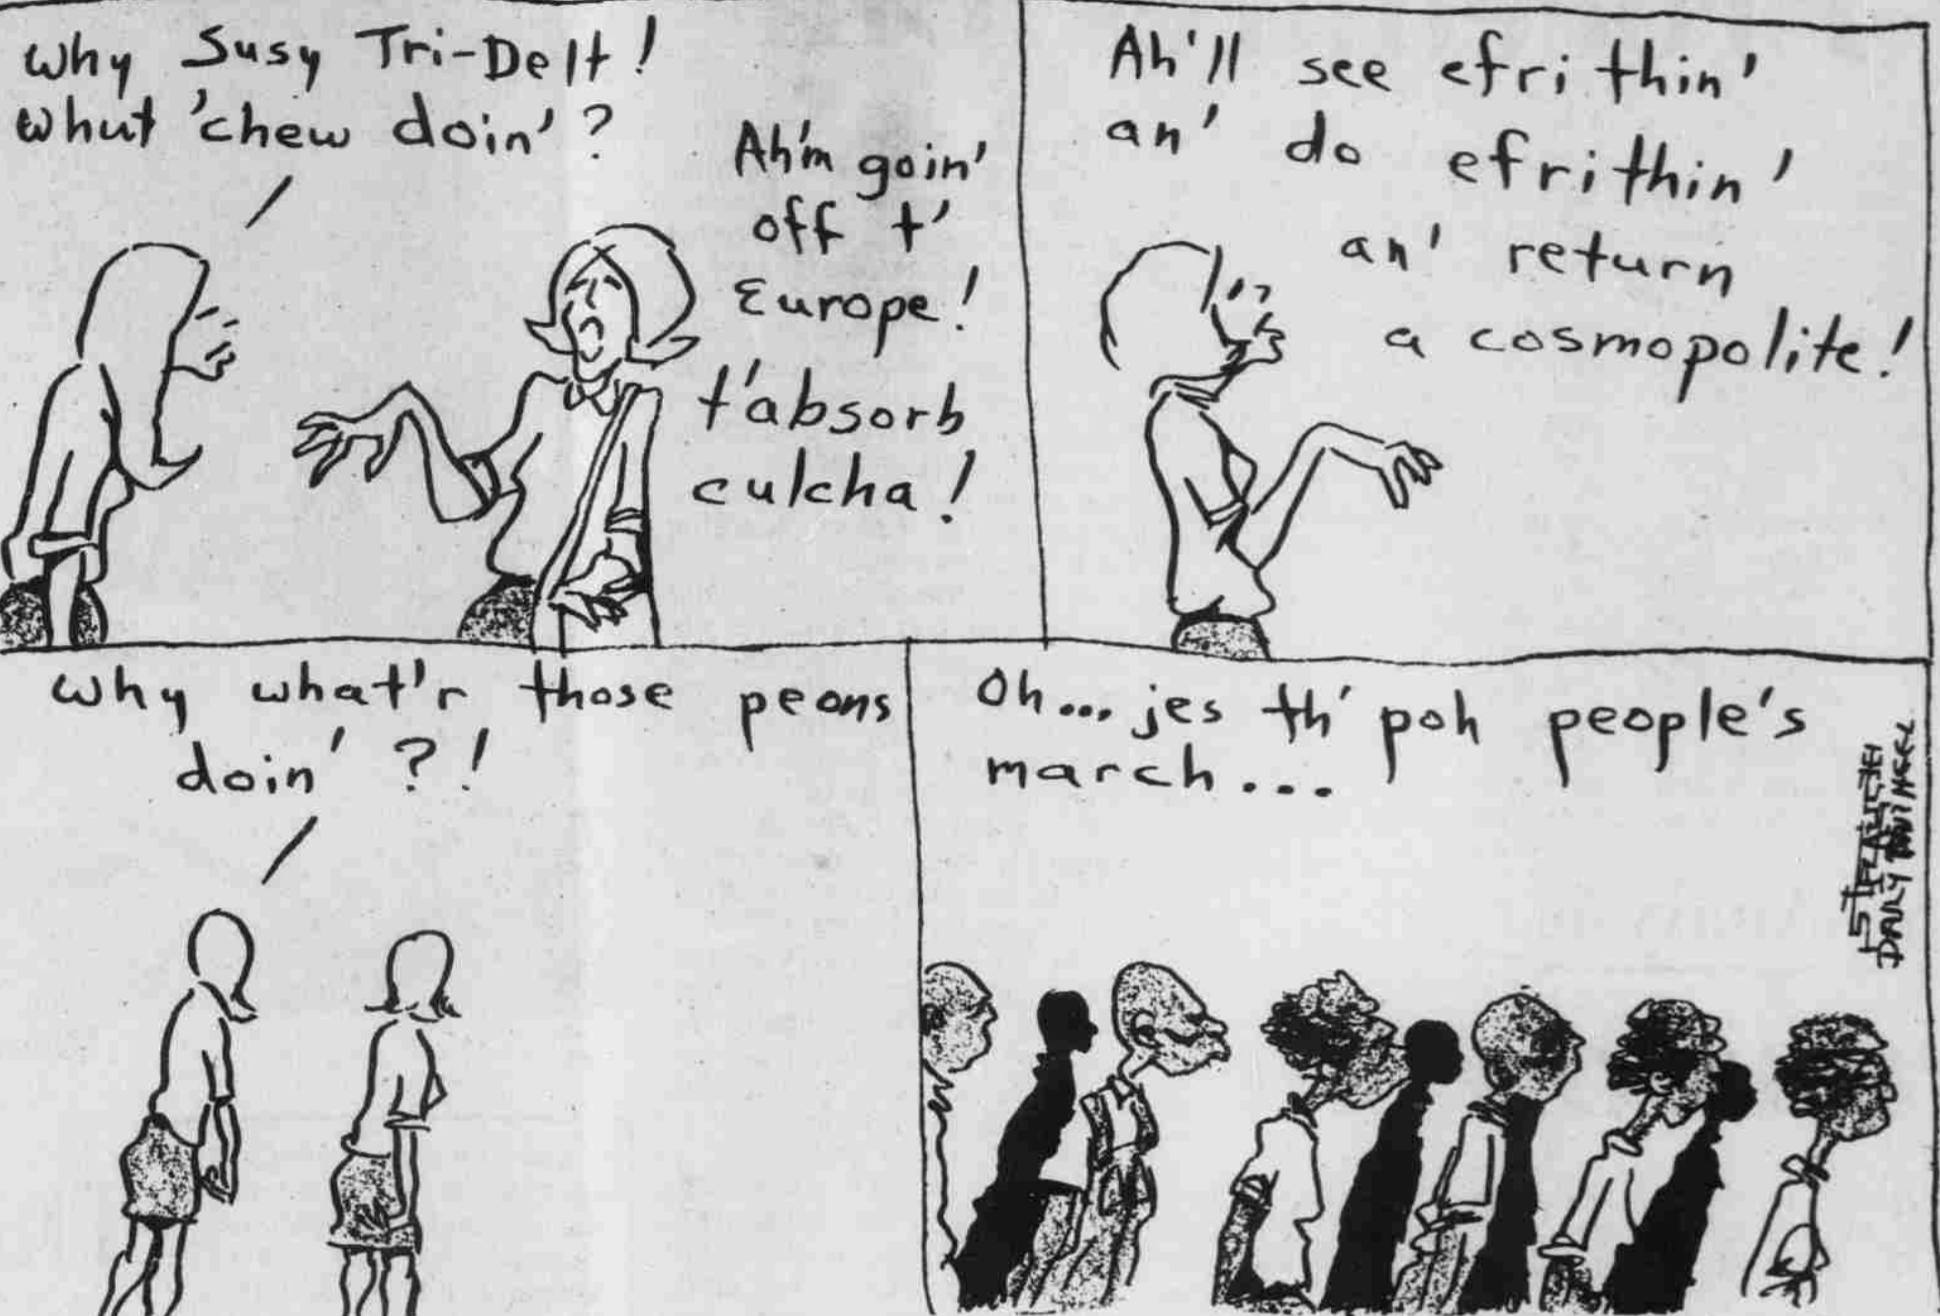 Why Susy Tri-Delt!
Whut 'chew doin'?
Ah'm goin'
off t'
Europe!
t'absorb
culcha!
Ah'll see efrithin'
an' do efrithin'
an' return
a cosmopolite!
Why what'r those peons
doin' ?!
Oh... jes th' poh people's
march...
DAILY TAR HEEL